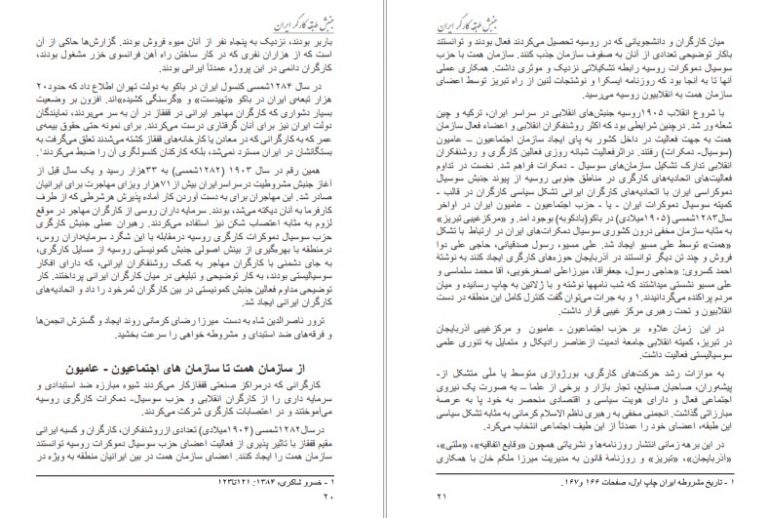 جنبش طبقه کارگر ایران
باربر بودند، نزدیک به پنجاه نفر از آنان میوه فروش بودند. گزارش‌ها حاکی از آن
است که از هزاران نفری که در کار ساختن راه آهن فرانسوی خزر مشغول بودند،
کارگران دائمی در این پروژه عمدتاً ایرانی بودند.
در سال ۱۲۸۴شمسی کنسول ایران در باکو به دولت تهران اطلاع داد که حدود۲۰
هزار تبعه‌ی ایران در باکو «تهیدست» و «گرسنگی کشیده»اند. افزون بر وضعیت
بسیار دشواری که کارگران مهاجر ایرانی در قفقاز در آن به سر می‌بردند، نمایندگان
دولت ایران نیز برای آنان گرفتاری درست می‌کردند. برای نمونه حتی حقوق بیمه‌ی
عمر که به کارگرانی که در معادن یا کارخانه‌های قفقاز کشته می‌شدند تعلق می‌گرفت به
بستگانشان در ایران مسترد نمی‌شد، بلکه کارکنان کنسولگری آن را ضبط می‌کردند۱.
همین رقم در سال ۱۹۰۳ (۱۲۸۲شمسی) به ۳۳هزار رسید و یک سال قبل از
آغاز جنبش مشروطیت درسراسرایران بیش از۷۱هزار ویزای مهاجرت برای ایرانیان
صادر شد. این مهاجران برای به دست آوردن کار آماده پذیرش هرشرطی که از طرف
کارفرما به آنان دیکته می‌شد، بودند. سرمایه داران روسی از کارگران مهاجر در موقع
لزوم به مثابه اعتصاب شکن نیز استفاده می‌کردند. رهبران عملی جنبش کارگری
حزب سوسیال دموکرات کارگری روسیه درمقابله با این شگرد سرمایه‌داران روس،
درمنطقه با بهره‌گیری از بینش اصولی جنبش کمونیستی روسیه از مسایل کارگری،
به جای دشمنی با کارگران مهاجر به کمک روشنفکران ایرانی، که دارای افکار
سوسیالیستی بودند، به کار توضیحی و تبلیغی در میان کارگران ایرانی پرداختند. کار
توضیحی مداوم فعالین جنبش کمونیستی در بین کارگران ثمرخود را داد و اتحادیه‌های
کارگران ایرانی ایجاد شد.
ترور ناصرالدین شاه به دست میرزا رضای کرمانی روند ایجاد و گسترش انجمن‌ها
و فرقه‌های ضد استبدای و مشروطه خواهی را سرعت بخشید.
از سازمان همت تا سازمان های اجتماعیون - عامیون
کارگرانی که درمراکز صنعتی قفقازکار می‌کردند شیوه مبارزه ضد استبدادی و
سرمایه داری را از کارگران انقلابی و حزب سوسیال- دمکرات کارگری روسیه
می‌آموختند و در اعتصابات کارگری شرکت می‌کردند.
درسال۱۲۸۲شمسی (۱۹۰۴میلادی) تعدادی ازروشنفکران، کارگران و کسبه ایرانی
مقیم قفقاز با تاثیر پذیری از فعالیت اعضای حزب سوسیال دموکرات روسیه توانستند
سازمان همت را ایجاد کنند. اعضای سازمان همت در بین ایرانیان منطقه به ویژه در
۱ - خسرو شاکری، ۱۳۸۴: ۱۲۱تا۱۲۳
۲۰
جنبش طبقه کارگر ایران
میان کارگران و دانشجویانی که در روسیه تحصیل می‌کردند فعال بودند و توانستند
باکار توضیحی تعدادی از آنان به صفوف سازمان جذب کنند. سازمان همت با حزب
سوسیال دموکرات روسیه رابطه تشکیلاتی نزدیک و موثری داشت. همکاری عملی
آنها تا به آنجا بود که روزنامه ایسکرا و نوشتجات لنین از راه تبریز توسط اعضای
سازمان همت به انقلابیون روسیه می‌رسید.
با شروع انقلاب ۱۹۰۵روسیه جنبش‌های انقلابی در سراسر ایران، ترکیه و چین
شعله ور شد. درچنین شرایطی بود که اکثر روشنفکران انقلابی و اعضاء فعال سازمان
همت به جهت فعالیت در داخل کشور به پای ایجاد سازمان اجتماعیون – عامیون
(سوسیال- دمکرات) رفتند. دراثرفعالیت شبانه روزی فعالین کارگری و روشنفکران
انقلابی تدارک تشکیل سازمان‌های سوسیال - دمکرات فراهم شد. نخست در تداوم
فعالیت‌های اتحادیه‌های کارگری در مناطق جنوبی روسیه از پیوند جنبش سوسیال
دموکراسی ایران با اتحادیه‌های کارگران ایرانی تشکل سیاسی کارگران در قالب -
کمیته سوسیال دموکرات ایران - یا - حزب اجتماعیون - عامیون ایران در اواخر
سال۱۲۸۳شمسی (۱۹۰۵میلادی) در باکو(بادکوبه) بوجود آمد. و «مرکزغیبی تبریز»
به مثابه سازمان مخفی درون کشوری سوسیال دمکرات‌های ایران در ارتباط با تشکل
«همت» توسط علی مسیو ایجاد شد. علی مسیو، رسول صدقیانی، حاجی علی دوا
فروش و چند تن دیگر توانستند در آذربایجان حوزه‌های کارگری ایجاد کنند به نوشتهٔ
احمد کسروی: «حاجی رسول، جعفرآقا، میرزاعلی اصغرخویی، آقا محمد سلماسی و
علی مسیو نشستی میداشتند که شب نامهها نوشته و با ژلاتین به چاپ رسانیده و میان
مردم پراکنده می‌گردانیدند.۱ و به جرات می‌توان گفت کنترل کامل این منطقه در دست
انقلابیون و تحت رهبری مرکز غیبی قرار داشت.
در این زمان علاوه بر حزب اجتماعیون - عامیون و مرکزغیبی آذربایجان
در تبریز، کمیته انقلابی جامعهٔ آدمیت ازعناصر رادیکال و متمایل به تئوری علمی
سوسیالیستی فعالیت داشت.
به موازات رشد حرکت‌های کارگری، بورژوازی متوسط یا ملّی متشکل از-
پیشه‌وران، صاحبان صنایع، تجار بازار و برخی از علما – به صورت یک نیروی
اجتماعی فعال و دارای هویت سیاسی و اقتصادی منحصر به خود پا به عرصهٔ
مبارزاتی گذاشت. انجمنی مخفی به رهبری ناظم الاسلام کرمانی به مثابه تشکل سیاسی
این طبقه، اعضای خود را عمدتاً از این طیف اجتماعی انتخاب می‌کرد.
در این برهه زمانی انتشار روزنامه‌ها و نشریاتی همچون «وقایع اتفاقیه»، «ملتی»،
«آذربایجان»، «تبریز» و روزنامهٔ قانون به مدیریت میرزا ملکم خان با همکاری
۱ - تاریخ مشروطه ایران چاپ اول، صفحات ۱۶۶ و۱۶۷.
۲۱